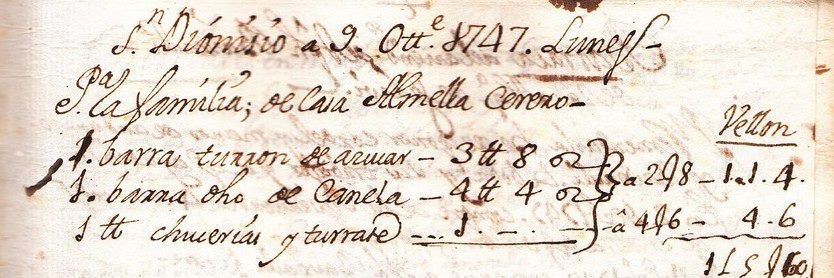 Sn. Dionisio a 9. Otte. 1747. Lunes
Pa. la familia; de Casa Almella Cerero
Vellon
1. barra turron de azucar – 3 tt 8 oz
1. barra dho de Canela – 4 tt 4 oz } a 2 8 – 1.1.4.
1 tt chucerias y turrat ... 1. – . – } â 4 6 – 4.6